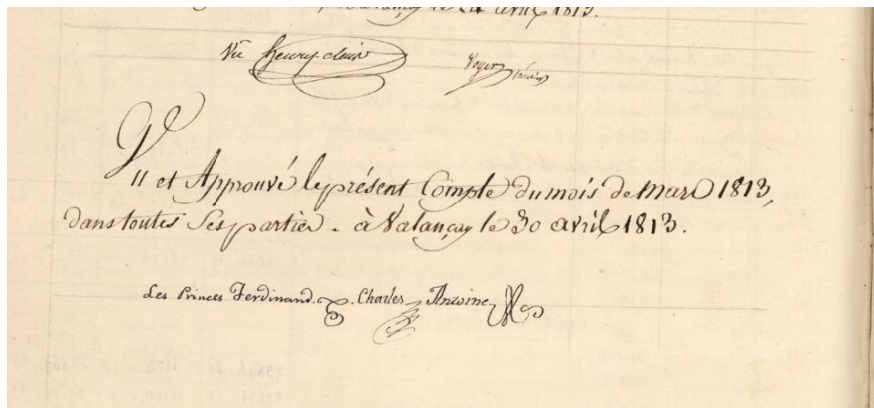 à Valançay le 24 avril 1813.
Vu henry-cleir Voyer
Vu et Approuvé le présent Compte du mois de Mars 1813,
dans toutes Ses parties. à Valançay le 30 avril 1813.
Les Princes Ferdinand. Charles Antoine